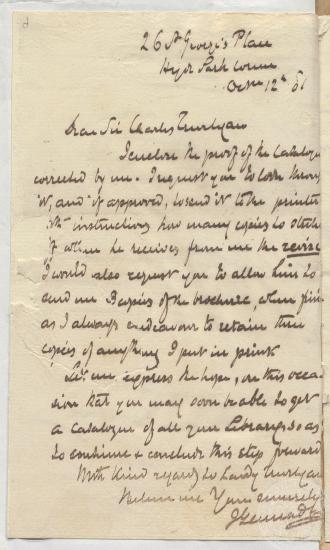 26 St George's Place
Hyde Park Corner
Octr 12th 81
Dear Sir Charles Trevelyan
I enclose the proof of the Catalogue
corrected by me. I request you to look through
it, and if approved, to send it to the printer
with instructions how many copies to strike
if when he receives from me the revise
I would also request you to allow him to
send me 3 copies of the brochure, when print
as I always endeavour to retain three
copies of anything I put in print
Let me express the hope, on this occa
sion that you may soon be able to get
a catalogue of all your Library so as
to combine & conclude this step forward
With kind regards to Lady Trevelyan
Believe me Yours sincerely
J Gennadius